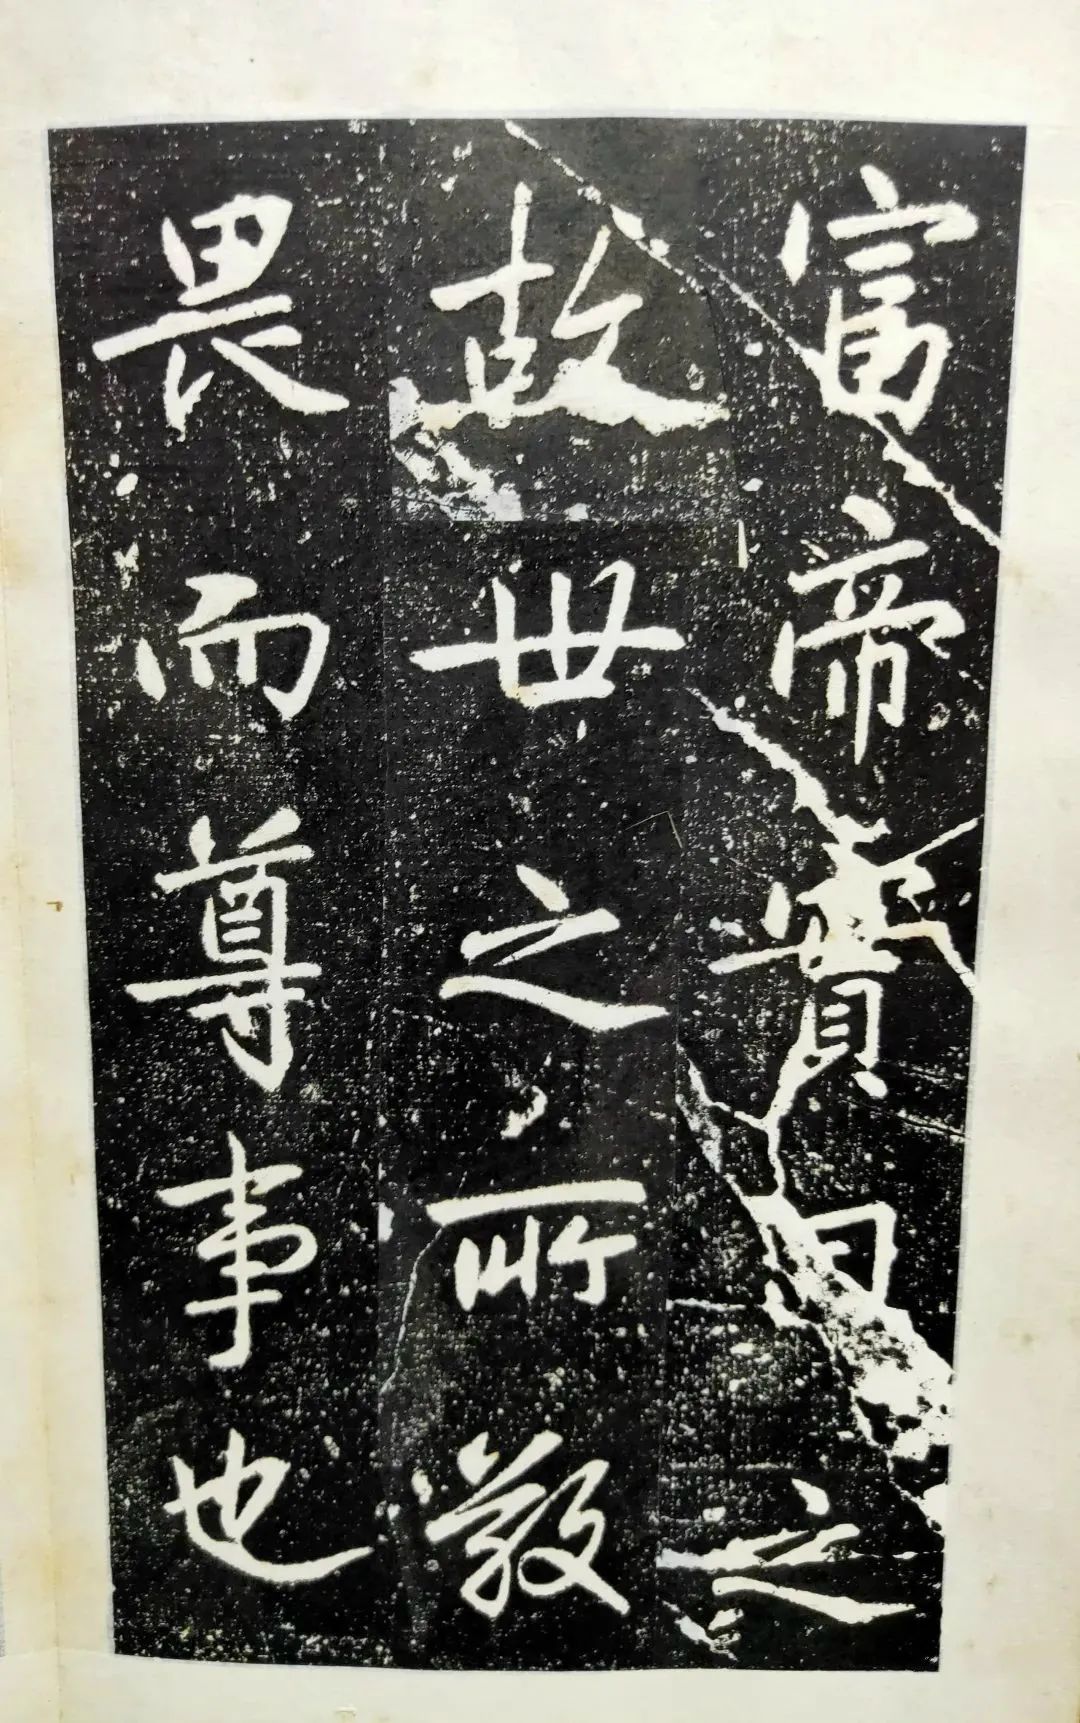 富帝實司之
故世之所嚴
畏而尊事也